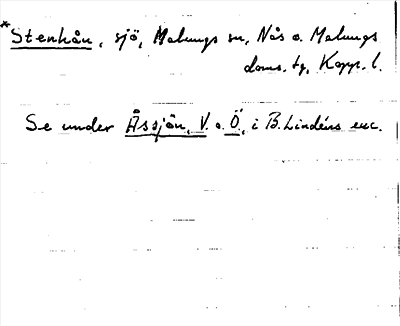 *Stenkån, sjö, Malungs sn, Nås o. Malungs
doms. tg, Kopp. l.
Se under Åssjön, V. o. Ö, i B. Lindéns exc.